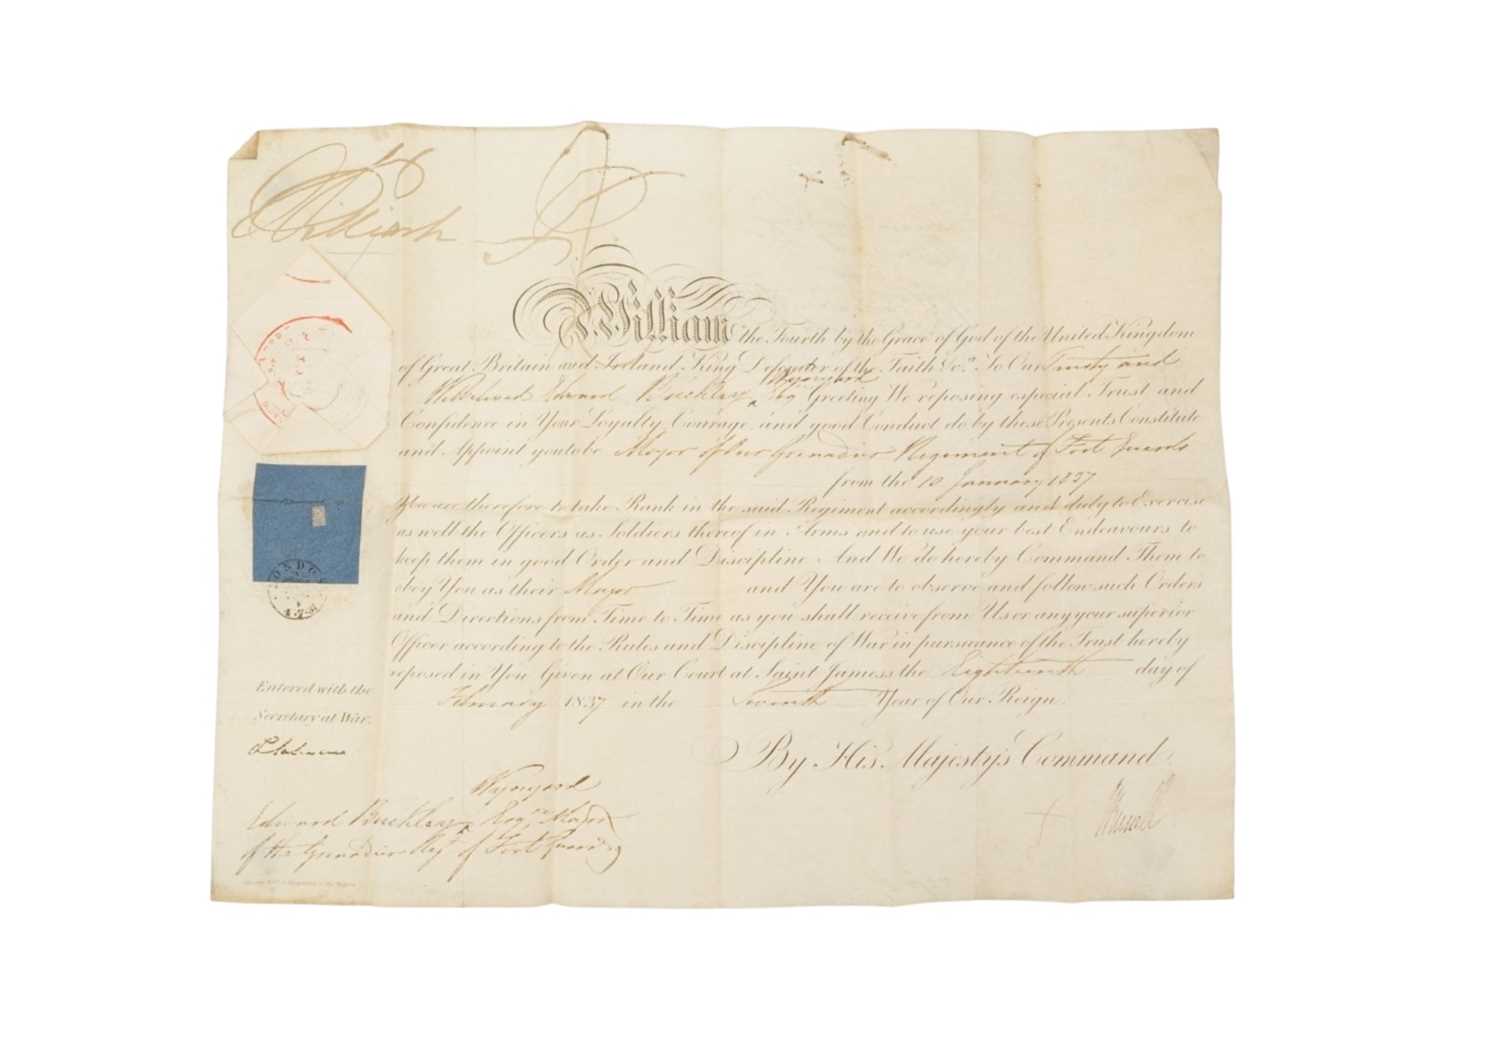 William R
William the Fourth by the Grace of God of the United Kingdom
of Great Britain and Ireland King Defender of the Faith &ca. To Our Trusty and
Wellbeloved Edward Buckley Wynyard Esq Greeting We reposing especial Trust and
Confidence in Your Loyalty, Courage, and good Conduct do by these Presents Constitute
and Appoint you to be Major of Our Grenadier Regiment of Foot Guards
from the 10 January 1837
You are therefore to take Rank in the said Regiment accordingly and duly to Exercise
as well the Officers as Soldiers thereof in Arms and to use your best Endeavours to
keep them in good Order and Discipline And We do hereby Command Them to
obey You as their Major and You are to observe and follow such Orders
and Directions from Time to Time as you shall receive from Us or any your superior
Officer according to the Rules and Discipline of War in pursuance of the Trust hereby
reposed in You Given at Our Court at Saint James's the Eighteenth day of
February 1837 in the Seventh Year of Our Reign.
By His Majesty's Command
Entered with the
Secretary at War.
LONDON
Wynyard
Edward Buckley Esqre Major
of the Grenadier Regt of Foot Guards